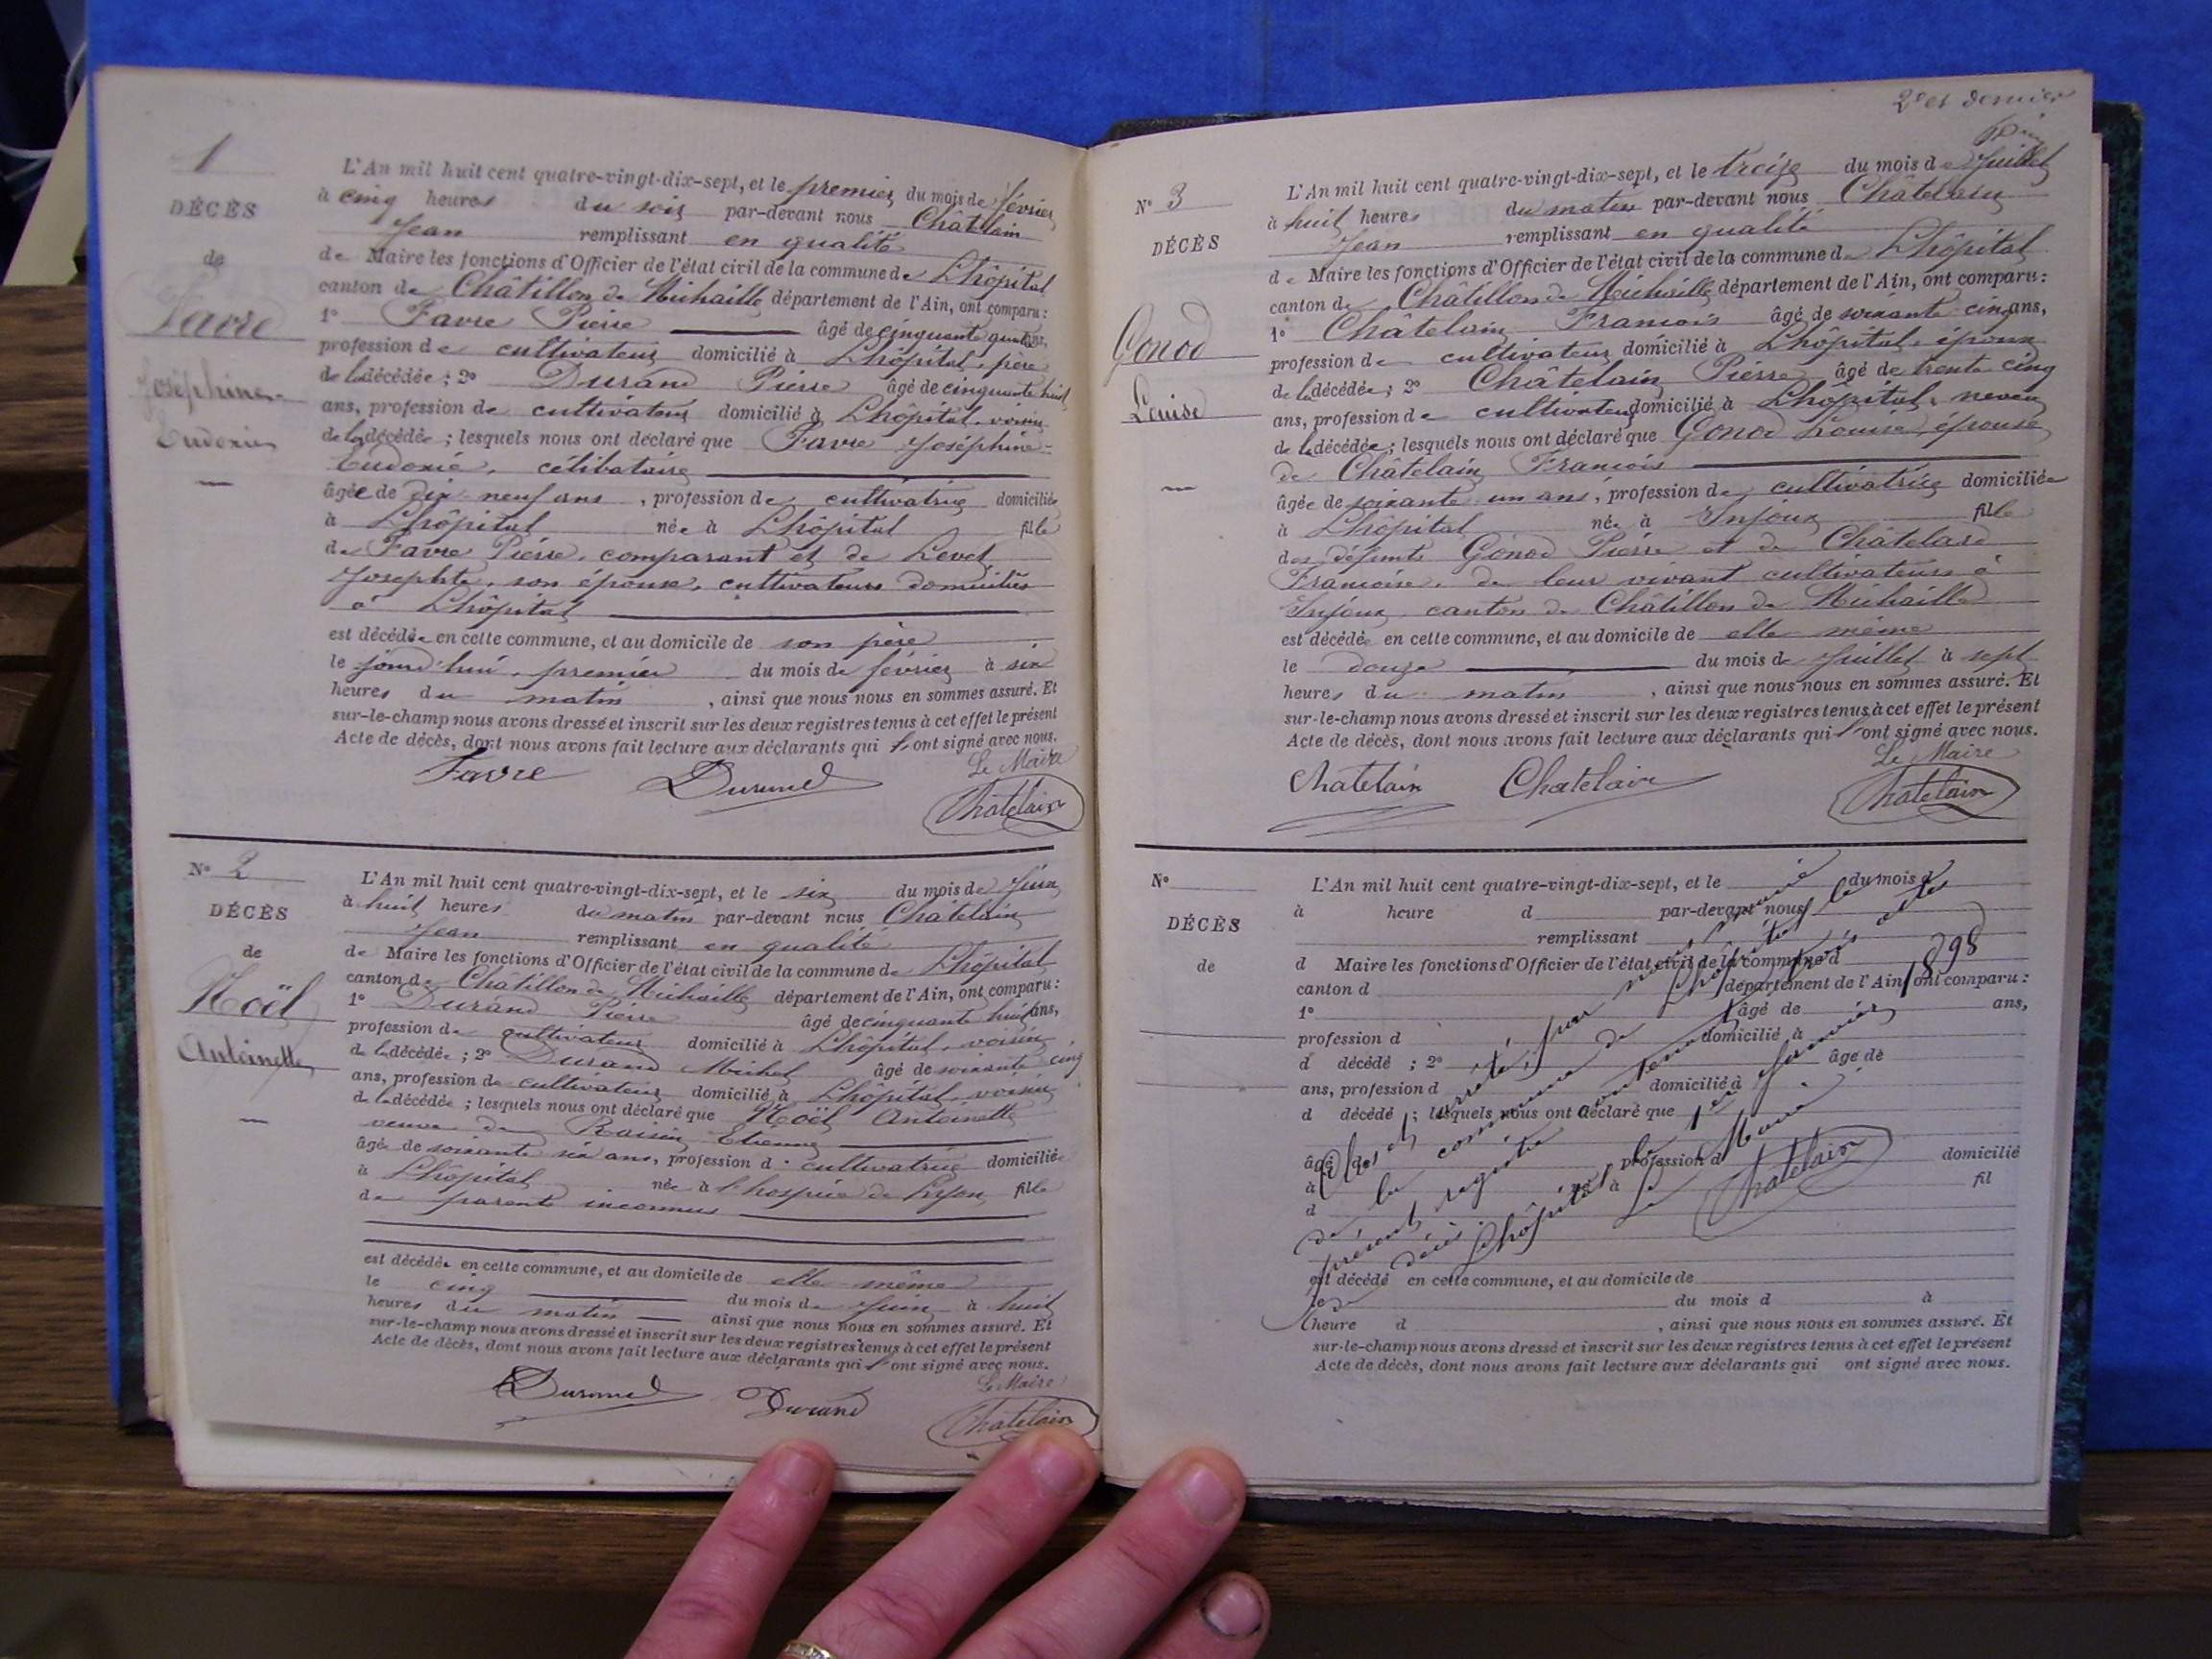 1
DÉCÈS
de
Favre
Joséphine-
Eudoxie
L'An mil huit cent quatre-vingt-dix-sept, et le premier du mois de février
à cinq heures du soir par-devant nous Châtelain
Jean remplissant en qualité
de Maire les fonctions d'Officier de l'état civil de la commune de Lhôpital
canton de Châtillon de Michaille département de l'Ain, ont comparu :
1° Favre Pierre âgé de cinquante quatre ans,
profession de cultivateur domicilié à Lhôpital, père
de la décédée ; 2° Durand Pierre âgé de cinquante huit
ans, profession de cultivateur domicilié à Lhôpital, voisin
de la décédée ; lesquels nous ont déclaré que Favre Joséphine-
Eudoxie, célibataire
âgée de dix neuf ans, profession de cultivatrice domiciliée
à Lhôpital née à Lhôpital fille
de Favre Pierre, comparant et de Levet
Josephte, son épouse, cultivateurs domiciliés
à Lhôpital
est décédée en cette commune, et au domicile de son père
le jourd'hui, premier du mois de février à six
heures du matin, ainsi que nous nous en sommes assuré. Et
sur-le-champ nous avons dressé et inscrit sur les deux registres tenus à cet effet le présent
Acte de décès, dont nous avons fait lecture aux déclarants qui l'ont signé avec nous.
Favre Durand Le Maire
Chatelain
N° 2
DÉCÈS
de
Noël
Antoinette
L'An mil huit cent quatre-vingt-dix-sept, et le six du mois de Juin
à huit heures du matin par-devant nous Châtelain
Jean remplissant en qualité
de Maire les fonctions d'Officier de l'état civil de la commune de Lhôpital
canton de Châtillon de Michaille département de l'Ain, ont comparu :
1° Durand Pierre âgé de cinquante huit ans,
profession de cultivateur domicilié à Lhôpital, voisin
de la décédée ; 2° Durand Michel âgé de soixante cinq
ans, profession de cultivateur domicilié à Lhôpital, voisin
de la décédée ; lesquels nous ont déclaré que Noël Antoinette
veuve de Raisin Etienne
âgée de soixante six ans, profession d cultivatrice domiciliée
à Lhôpital née à l'hospice de Lyon fille
de parents inconnus
est décédée en cette commune, et au domicile de elle même
le cinq du mois de Juin à huit
heures du matin ainsi que nous nous en sommes assuré. Et
sur-le-champ nous avons dressé et inscrit sur les deux registres tenus à cet effet le présent
Acte de décès, dont nous avons fait lecture aux déclarants qui l'ont signé avec nous.
Durand Durand Le Maire
Chatelain
2e et dernier
N° 3
DÉCÈS
Gonod
Louise
L'An mil huit cent quatre-vingt-dix-sept, et le treize du mois de Juillet
à huit heures du matin par-devant nous Châtelain
Jean remplissant en qualité
de Maire les fonctions d'Officier de l'état civil de la commune de Lhôpital
canton de Châtillon de Michaille département de l'Ain, ont comparu :
1° Châtelain François âgé de soixante cinq ans,
profession de cultivateur domicilié à Lhôpital, époux
de la décédée ; 2° Châtelain Pierre âgé de trente cinq
ans, profession de cultivateur domicilié à Lhôpital, neveu
de la décédée ; lesquels nous ont déclaré que Gonod Louise, épouse
de Châtelain François
âgée de soixante un ans, profession de cultivatrice domiciliée
à Lhôpital née à Injoux fille
des défunts Gonod Pierre et de Châtelard
Françoise, de leur vivant cultivateurs à
Injoux canton de Châtillon de Michaille
est décédée en cette commune, et au domicile de elle même
le douze du mois de Juillet à sept
heures du matin, ainsi que nous nous en sommes assuré. Et
sur-le-champ nous avons dressé et inscrit sur les deux registres tenus à cet effet le présent
Acte de décès, dont nous avons fait lecture aux déclarants qui l'ont signé avec nous.
Chatelain Chatelain Le Maire
Chatelain
N°
DÉCÈS
de
L'An mil huit cent quatre-vingt-dix-sept, et le du mois d
à heure d par-devant nous
remplissant
d Maire les fonctions d'Officier de l'état civil de la commune d
canton d département de l'Ain, ont comparu :
1° âgé de ans,
profession d domicilié à
d décédé ; 2° âgé de
ans, profession d domicilié à
d décédé ; lesquels nous ont déclaré que
âgé de profession d domicilié
à né à fil
d
est décédé en cette commune, et au domicile de
le du mois d à
heure d, ainsi que nous nous en sommes assuré. Et
sur-le-champ nous avons dressé et inscrit sur les deux registres tenus à cet effet le présent
Acte de décès, dont nous avons fait lecture aux déclarants qui ont signé avec nous.
Clos et arrêté par nous maire
de la commune de Lhôpital le
présent registre contenant trois actes
de décès
Lhôpital le 1er Janvier 1898
Le Maire
Chatelain